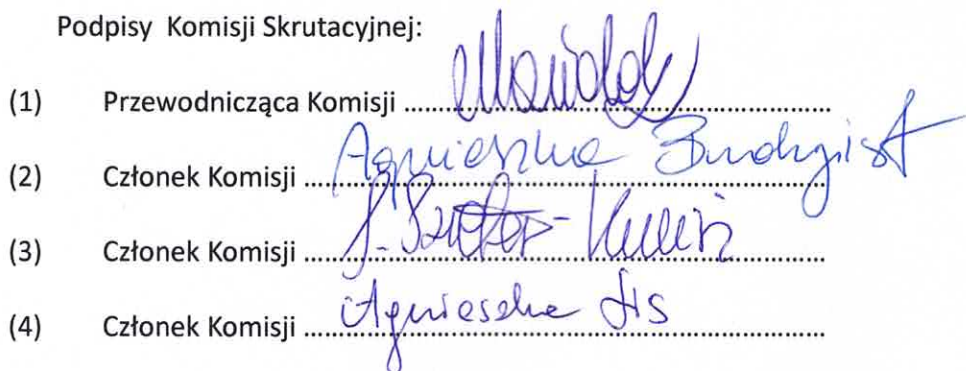 Podpisy Komisji Skrutacyjnej:
(1) Przewodnicząca Komisji
(2) Członek Komisji Agnieszka
(3) Członek Komisji
(4) Członek Komisji Agnieszka Lis